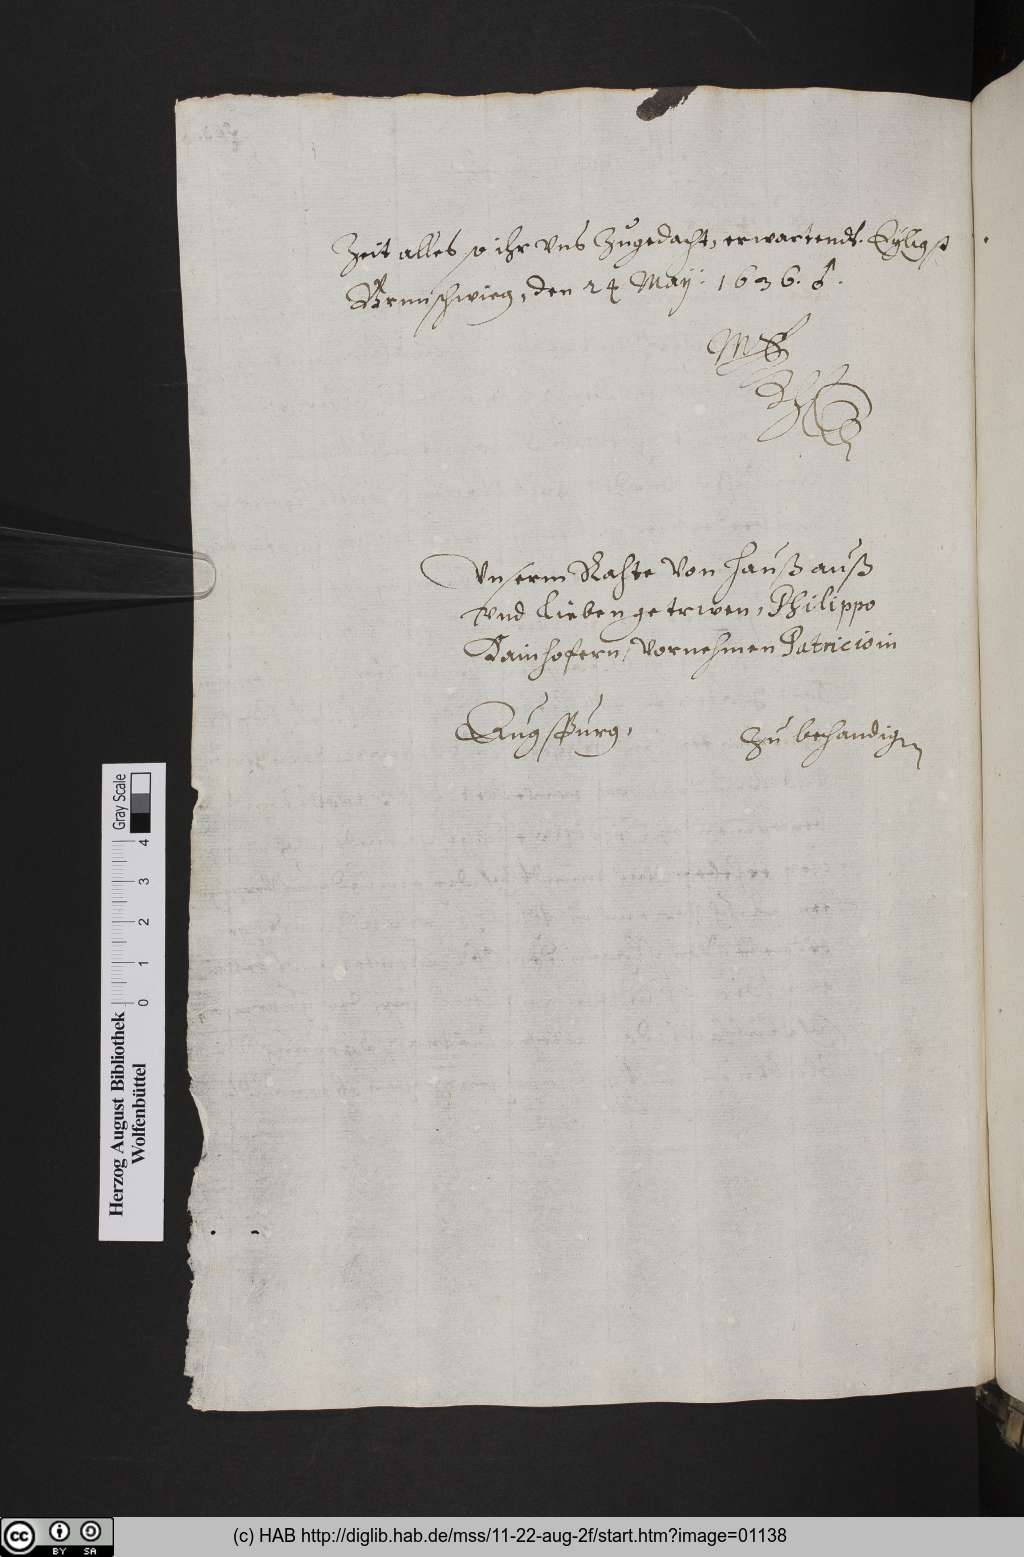 Zeit alles so ihr vns zugedacht, erwartendt. Eyligst
Brunschwieg, den 24 Maÿ: 1636. ♂.
Vnserm Rahte von hauß auß
vnd lieben getrwen, Philippo
Hainhofern, vornehmen Patricio in
Augspurg,
zu behandigen
Herzog August Bibliothek
Wolfenbüttel
0 1 2 3 4
Gray Scale
cc BY SA
(c) HAB http://diglib.hab.de/mss/11-22-aug-2f/start.htm?image=01138